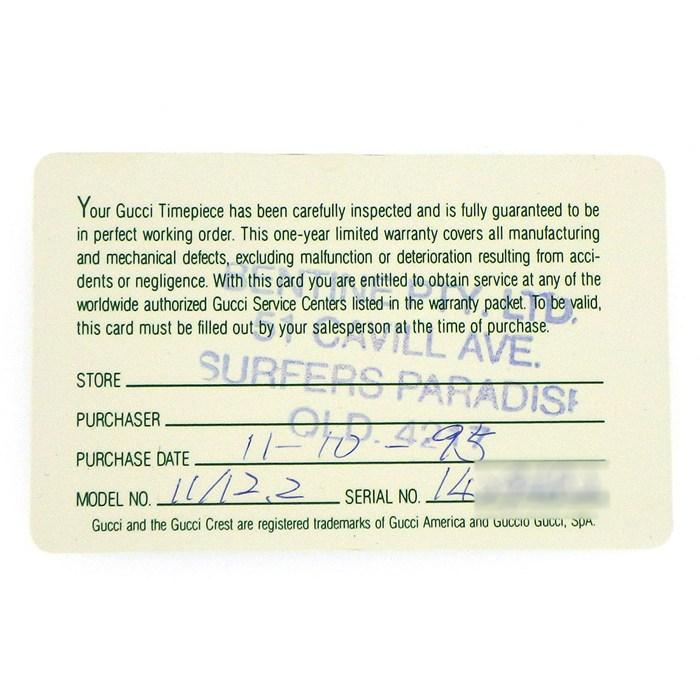 Your Gucci Timepiece has been carefully inspected and is fully guaranteed to be
in perfect working order. This one-year limited warranty covers all manufacturing
and mechanical defects, excluding malfunction or deterioration resulting from acci-
dents or negligence. With this card you are entitled to obtain service at any of the
worldwide authorized Gucci Service Centers listed in the warranty packet. To be valid,
this card must be filled out by your salesperson at the time of purchase.
BENTINE PTY. LTD.
51 CAVILL AVE.
SURFERS PARADISE
QLD. 4217
STORE
PURCHASER
PURCHASE DATE 11-10-95
MODEL NO. 11/12.2 SERIAL NO. 14
Gucci and the Gucci Crest are registered trademarks of Gucci America and Guccio Gucci, SpA.